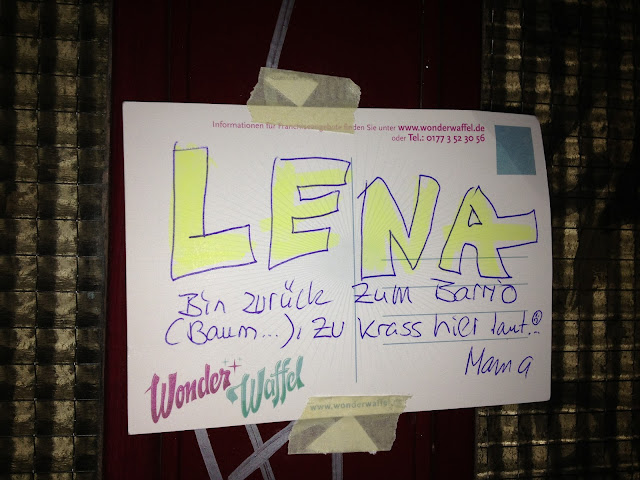 Informationen für Franchiseangebote finden Sie unter www.wonderwaffel.de
oder Tel.: 0177 3 52 30 56
LENA
Bin zurück zum Barrio
(Baum...), zu krass hier laut!..
Mama
Wonder Waffel
www.wonderwaffel.de